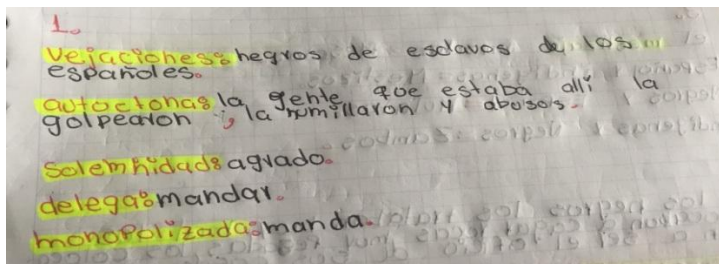 1.
Vejaciones: negros de esclavos de los
españoles.
autoctona: la gente que estaba allí la
golpearon, la humillaron y abusos.
Solemnidad: agrado.
delega: mandar.
monopolizada: manda.